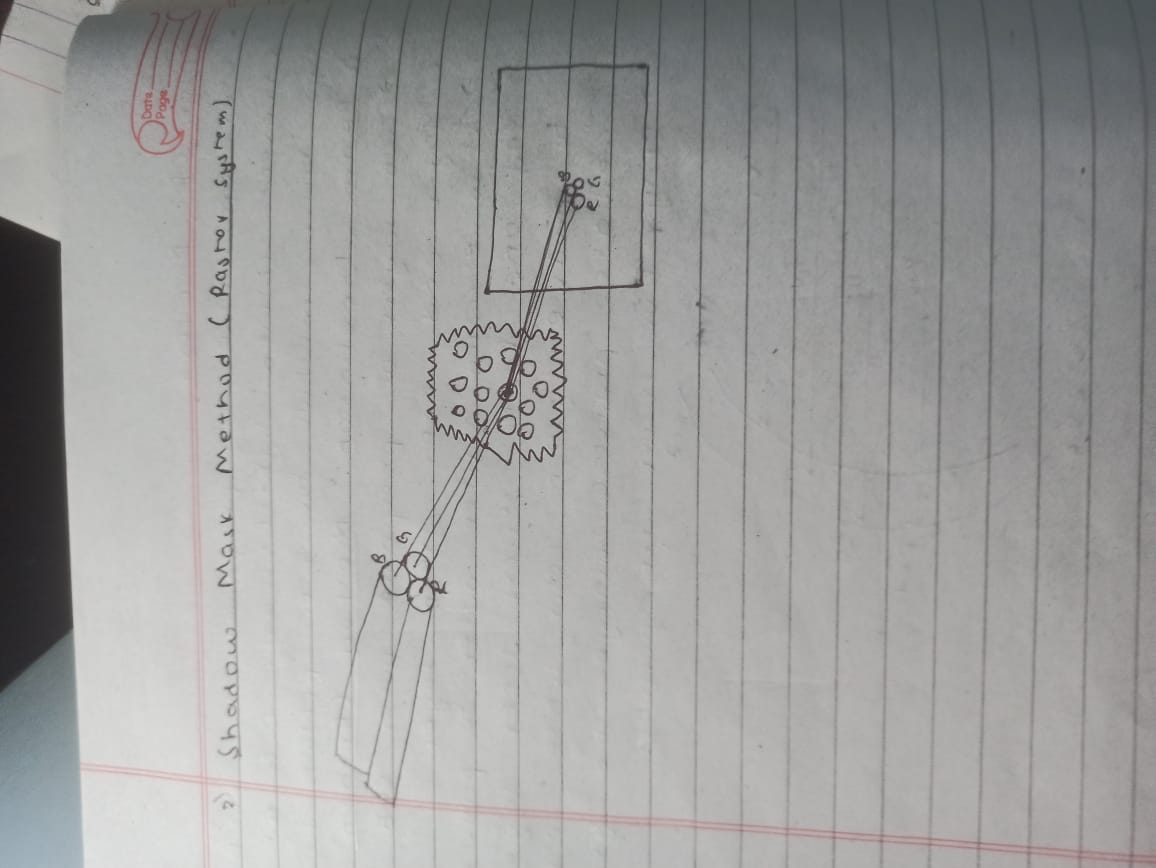 Date
Page
2) Shadow Mask Method (Rastor System)
B
G
R
B
G
R